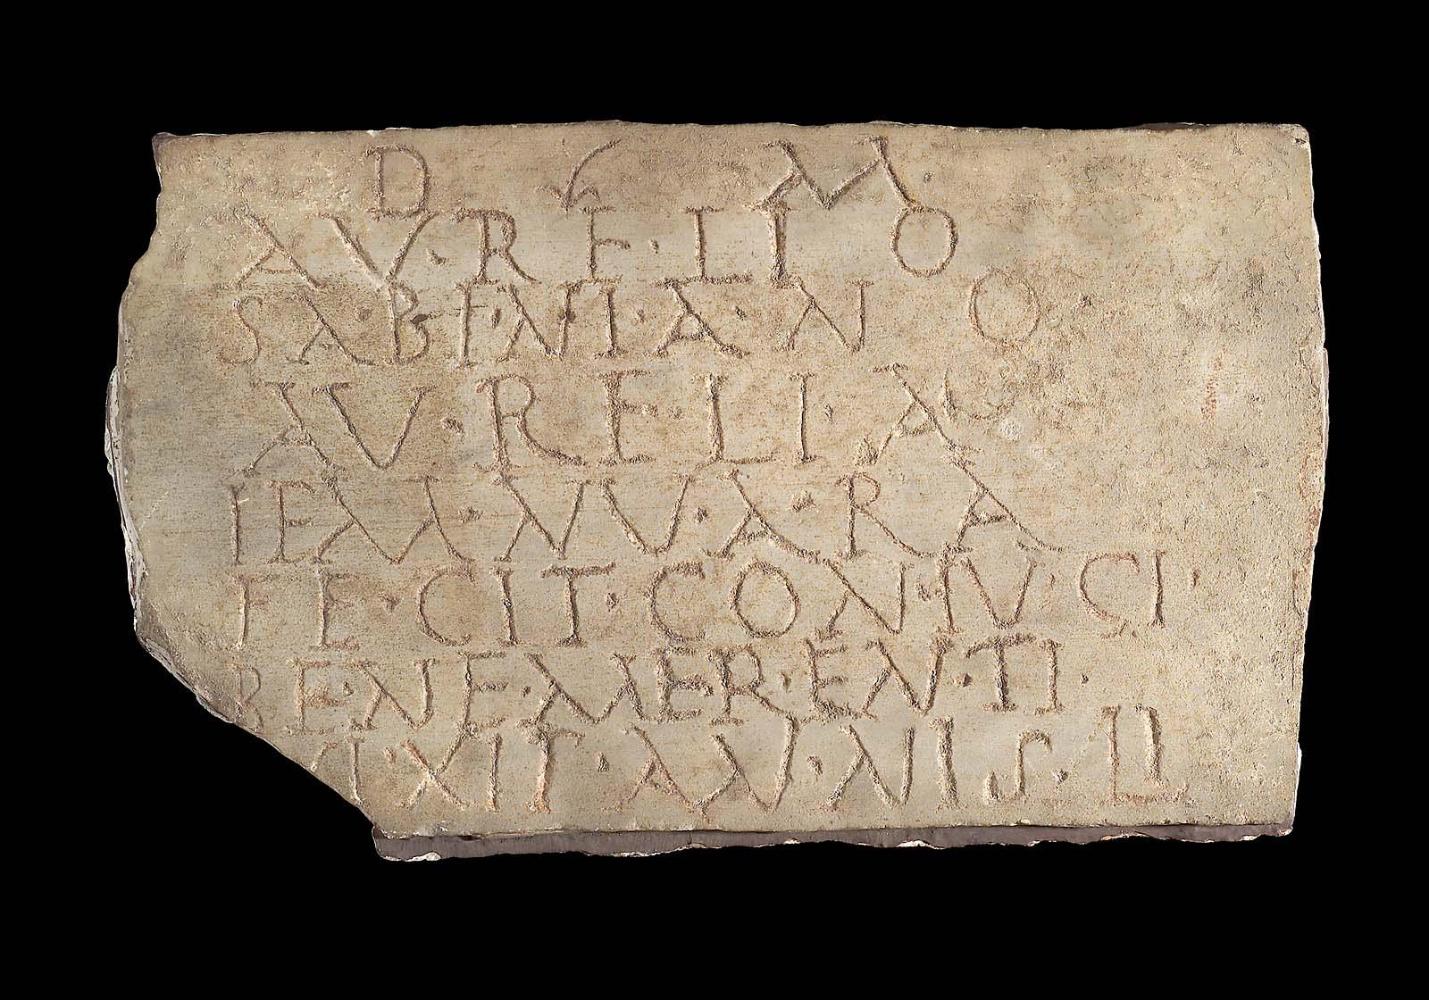 D M
AV·RE·LI O
SA·BE·NI·A·N O
AV·RE·LI·A
IEM·NV·A·RA
FE·CIT·CON·IV·GI·
BE·NE·MER·EN·TI·
VI·XIT·AN·NIS·LI